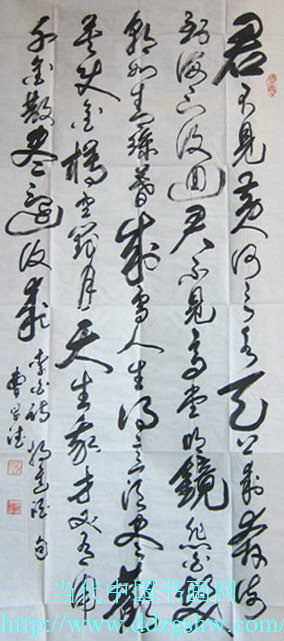 君不見黃河之水天上來奔流
到海不復回君不見高堂明鏡悲白髮
朝如青絲暮成雪人生得意須盡歡
莫使金樽空對月天生我才必有用
千金散盡還復來
李白詩將進酒句
当代中国书画网
http://www.ddzgshw.com